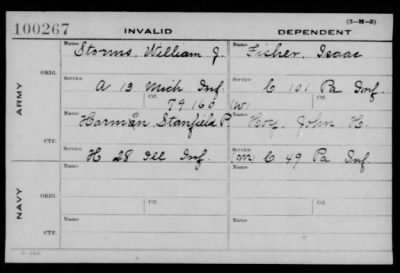 (3-H-5)
100267 INVALID DEPENDENT
Name Storms, William J. Name Fisher, Isaac
ARMY
ORIG.
Service A 13 Mich Inf. Service C 101 Pa Inf.
Ctf. 79160 Ctf. (W)
CTF.
Name Harman, Stanfield P. Name Hoy, John H.
Service H 28 Ill Inf. Service (M) C 49 Pa Inf.
NAVY
ORIG.
Name Name
Service Service
Ctf. Ctf.
CTF.
Name Name